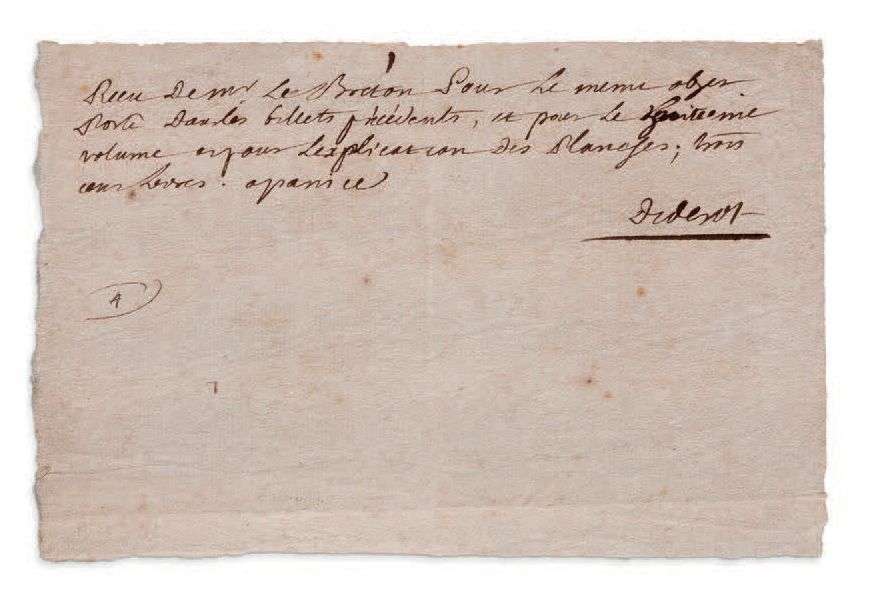 Recu de mr Le Breton pour le meme objet
Porté dans les billets précédents, et pour le huitieme
volume et pour l'explication des Planches; trois
cent livres. a paris ce
Diderot
4